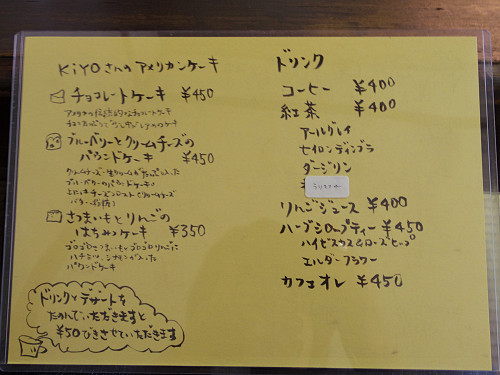 KiYOさんのアメリカンケーキ
チョコレートケーキ ¥450
ブルーベリーとクリームチーズの
パウンドケーキ ¥450
さつまいもとりんごの
はちみつケーキ ¥350
ゴロゴロさつまいもとゴロゴロりんごに
ハチミツ、シナモンが入った
パウンドケーキ
ドリンクとデザートを
たのんでいただきますと
¥50びきさせていただきます
ドリンク
コーヒー ¥400
紅茶 ¥400
アールグレイ
セイロンディンブラ
ダージリン
りんごジュース ¥400
ハーブシロップティー ¥450
ハイビスカス&ローズヒップ
エルダーフラワー
カフェオレ ¥450